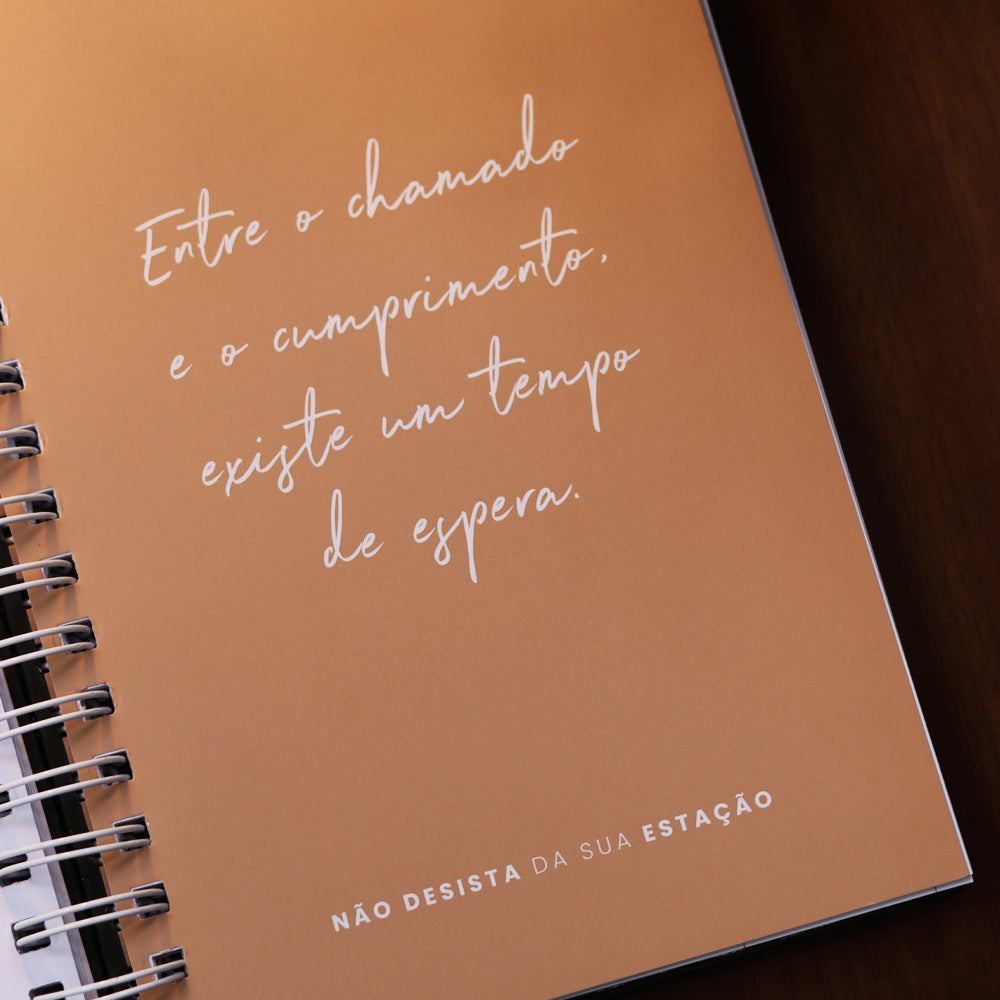 Entre o chamado
e o cumprimento,
existe um tempo
de espera.
NÃO DESISTA DA SUA ESTAÇÃO